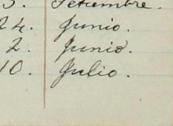 5. Setiembre.
24. Junio.
2. Junio.
10. Julio.